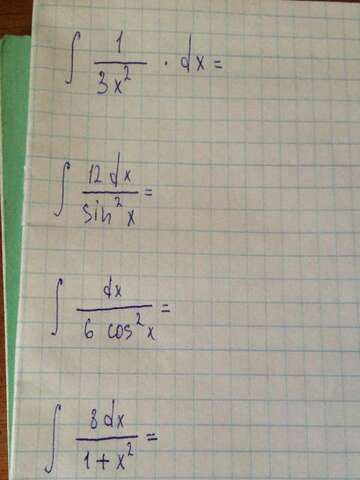 ∫ 1/(3x²) · dx =
∫ 12 dx/(sin² x) =
∫ dx/(6 cos² x) =
∫ 8 dx/(1 + x²) =